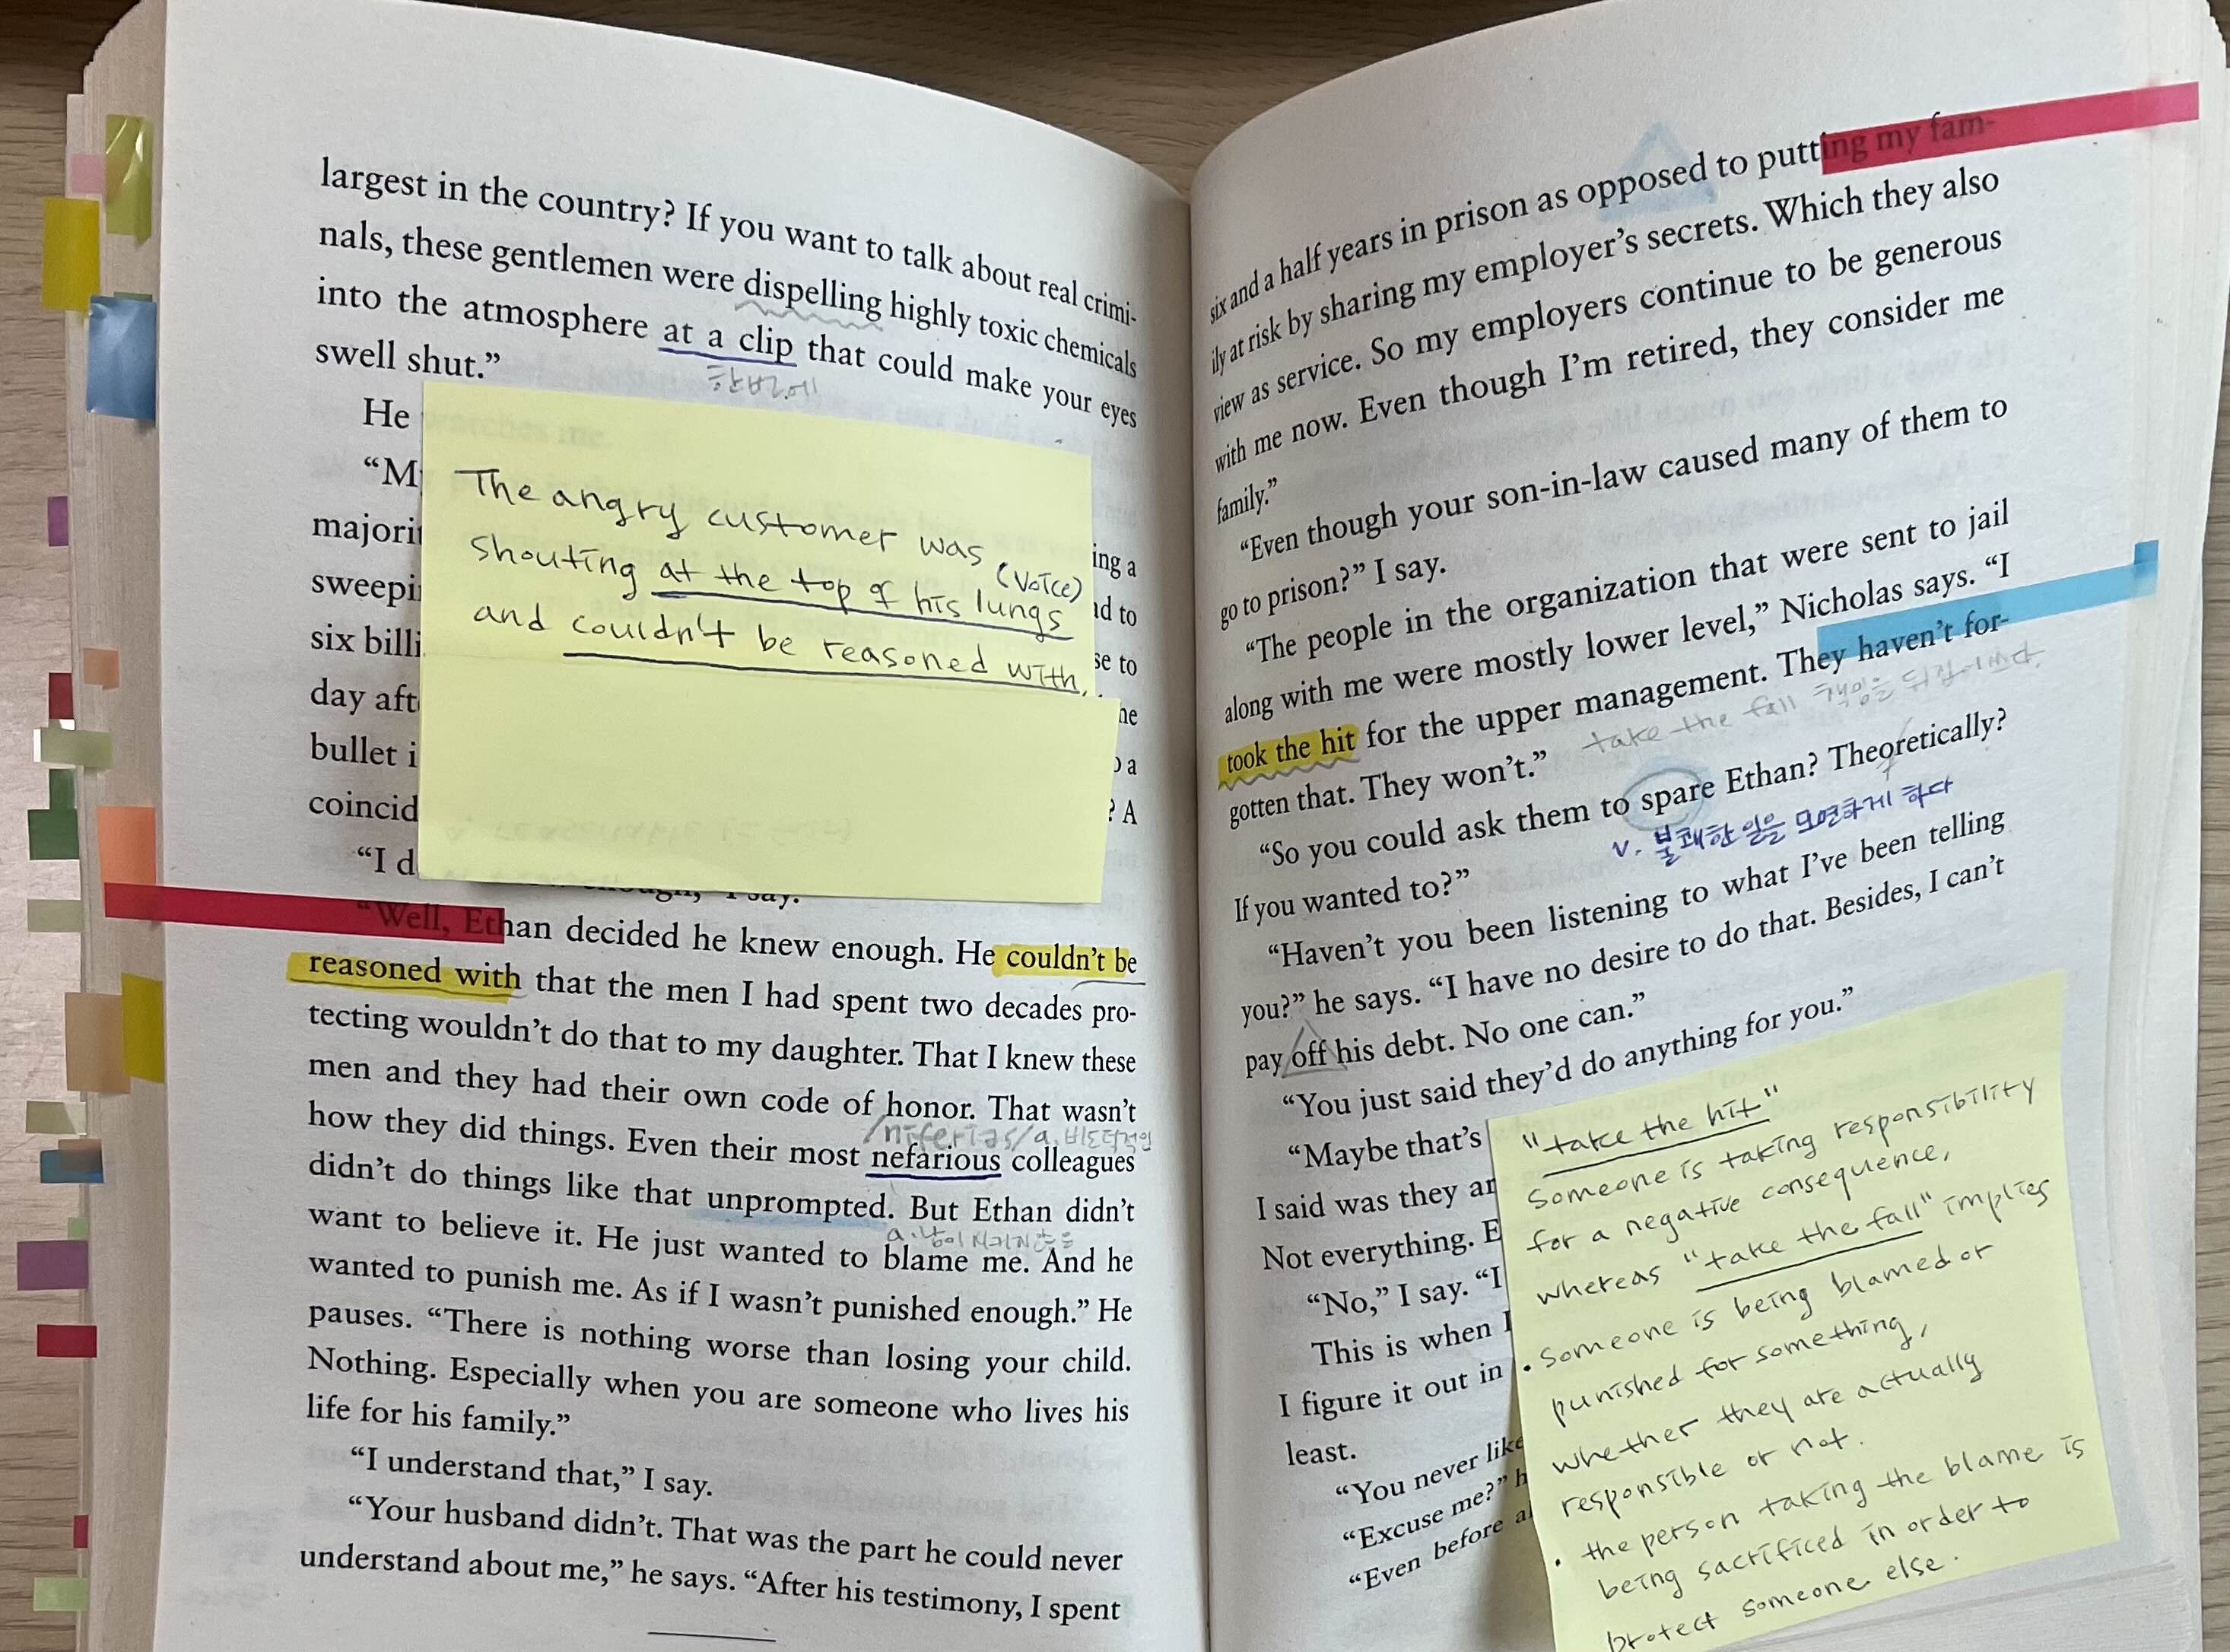 largest in the country? If you want to talk about real crimi-
nals, these gentlemen were dispelling highly toxic chemicals
into the atmosphere at a clip that could make your eyes
한번에
swell shut.”
He
“My
majori
ing a
sweepi
d to
six billi
se to
day aft
he
bullet i
o a
coincid
? A
“I d
ough,” I say.
The angry customer was
shouting at the top of his lungs
(voice)
and couldn't be reasoned with.
“Well, Ethan decided he knew enough. He couldn’t be
reasoned with that the men I had spent two decades pro-
tecting wouldn’t do that to my daughter. That I knew these
men and they had their own code of honor. That wasn’t
how they did things. Even their most nefarious colleagues
/niferiəs/ a. 비도덕적인
didn’t do things like that unprompted. But Ethan didn’t
a. 남이 시키지 않은
want to believe it. He just wanted to blame me. And he
wanted to punish me. As if I wasn’t punished enough.” He
pauses. “There is nothing worse than losing your child.
Nothing. Especially when you are someone who lives his
life for his family.”
“I understand that,” I say.
“Your husband didn’t. That was the part he could never
understand about me,” he says. “After his testimony, I spent
six and a half years in prison as opposed to putting my fam-
ily at risk by sharing my employer’s secrets. Which they also
view as service. So my employers continue to be generous
with me now. Even though I’m retired, they consider me
family.”
“Even though your son-in-law caused many of them to
go to prison?” I say.
“The people in the organization that were sent to jail
along with me were mostly lower level,” Nicholas says. “I
took the hit for the upper management. They haven’t for-
take the fall 책임을 뒤집어쓰다.
gotten that. They won’t.”
“So you could ask them to spare Ethan? Theoretically?
v. 불쾌한 일을 모면하게 하다
If you wanted to?”
“Haven’t you been listening to what I’ve been telling
you?” he says. “I have no desire to do that. Besides, I can’t
pay off his debt. No one can.”
“You just said they’d do anything for you.”
“Maybe that’s
I said was they ar
Not everything. E
“No,” I say. “I
This is when I
I figure it out in
least.
“You never like
“Excuse me?” h
“Even before al
"take the hit"
Someone is taking responsibility
for a negative consequence,
whereas "take the fall" implies
• Someone is being blamed or
punished for something,
whether they are actually
responsible or not.
• the person taking the blame is
being sacrificed in order to
protect someone else.